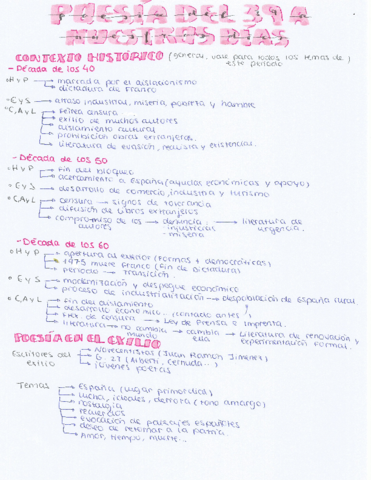 POESÍA DEL 39 A
NUESTROS DÍAS
CONTEXTO HISTÓRICO (general, vale para todos los temas de este periodo)
- Década de los 40
• H y P → marcada por el aislacionismo
→ dictadura de Franco
• E y S → atraso industrial, miseria, pobreza y hambre
• C, A y L → férrea censura
→ exilio de muchos autores
→ aislamiento cultural
→ prohibición obras extranjeras
→ literatura de evasión, realista y existencial.
- Década de los 50
• H y P → fin del bloqueo
→ acercamiento a España (ayudas económicas y apoyo)
• E y S → desarrollo de comercio, industria y turismo
• C, A y L → censura → signos de tolerancia
→ difusión de libros extranjeros
→ compromiso de los autores → denuncia: → literatura de urgencia.
- injusticias
- miseria
- Década de los 60
• H y P → apertura al exterior (formas + democráticas)
→ 1975 muere Franco (fin de dictadura)
→ periodo → transición.
• E y S → modernización y despegue económico
→ proceso de industrialización → despoblación de España rural
• C, A y L → fin del aislamiento
→ desarrollo económico. (contado antes)
→ de censura → Ley de Prensa e Imprenta.
→ literatura → no cambia mundo → cambia ella → literatura de renovación y experimentación formal.
POESÍA EN EL EXILIO
Escritores del exilio → Novecentistas (Juan Ramón Jiménez)
→ G. 27 (Alberti, Cernuda...)
→ jóvenes poetas
Temas → España (lugar primordial)
→ lucha, ideales, derrota (tono amargo)
→ nostalgia
→ recuerdos
→ evocación de paisajes españoles
→ deseo de retornar a la patria.
→ Amor, tiempo, muerte...